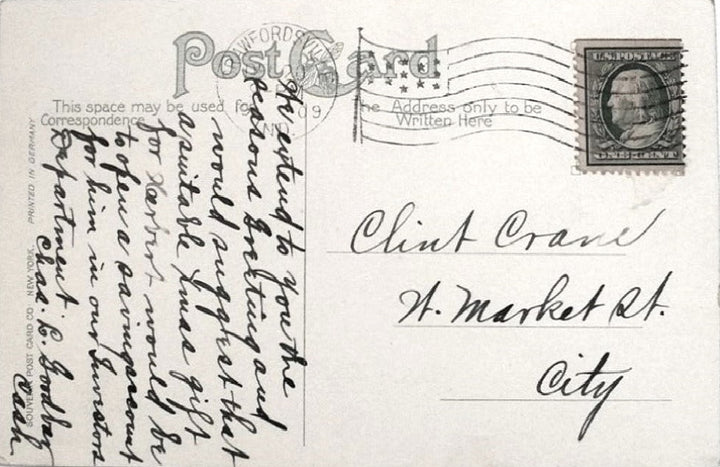 Post Card
This space may be used for
Correspondence
The Address only to be
Written Here
CRAWFORDSVILLE
09
IND.
U.S. POSTAGE
ONE CENT
We extend to you the
seasons Greeting and
would suggest that
a suitable Xmas gift
for Herbert would be
to open a savings account
for him in our Investors
Department.
Chas. L. Goodbar
Cash.
Clint Crane
W. Market St.
City
PRINTED IN GERMANY
SOUVENIR POST CARD CO. NEW YORK